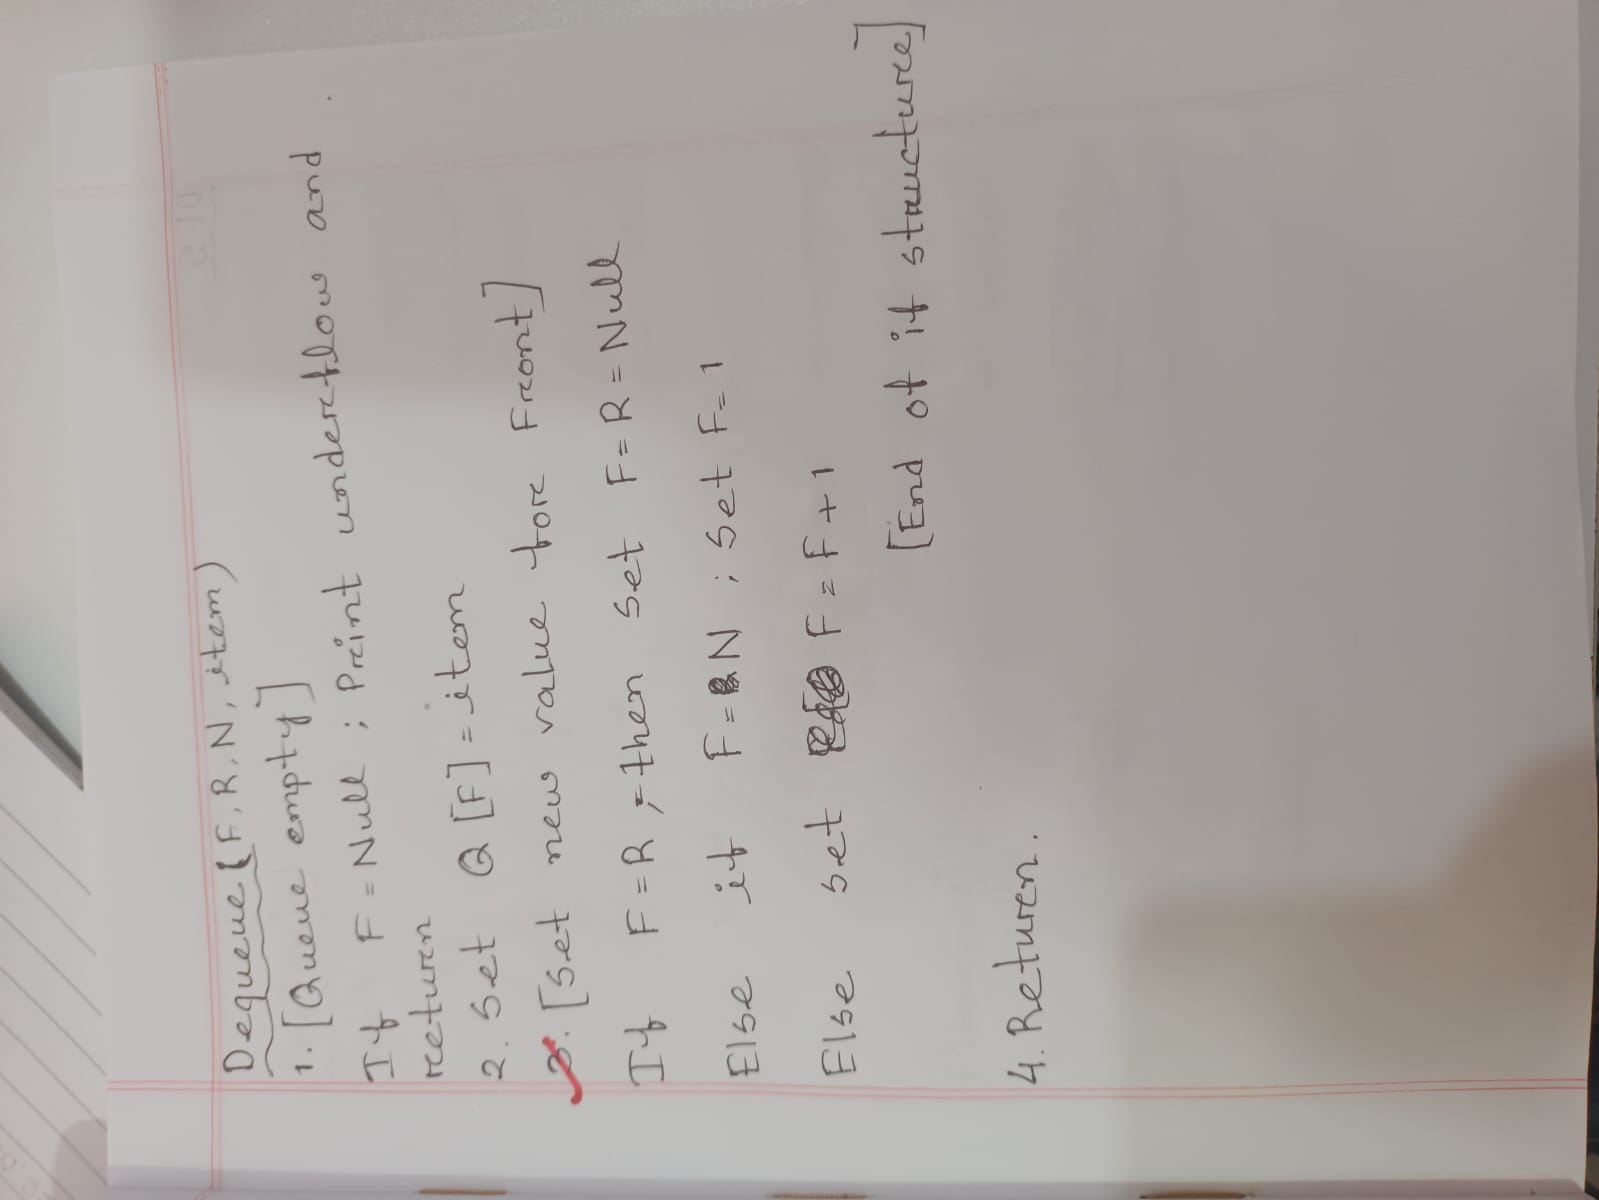 Dequeue (F, R, N, item)
1. [Queue empty]
If F = Null ; Print underflow and
return
2. Set Q [F] = item
3. [Set new value for Front]
If F = R ; then set F = R = Null
Else if F = N ; Set F = 1
Else set F = F + 1
[End of if structure]
4. Return.